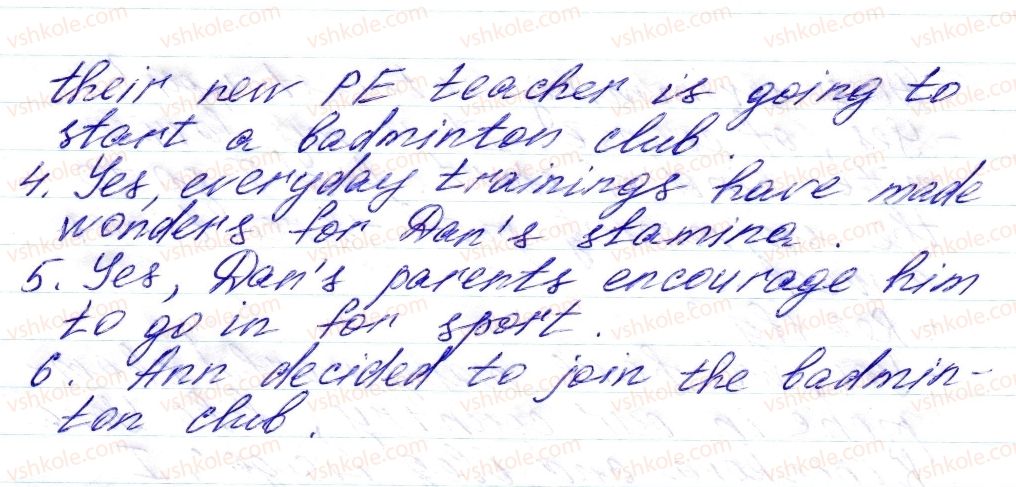 their new PE teacher is going to
start a badminton club.
4. Yes, everyday trainings have made
wonders for Dan's stamina.
5. Yes, Dan's parents encourage him
to go in for sport.
6. Ann decided to join the badmin-
ton club.